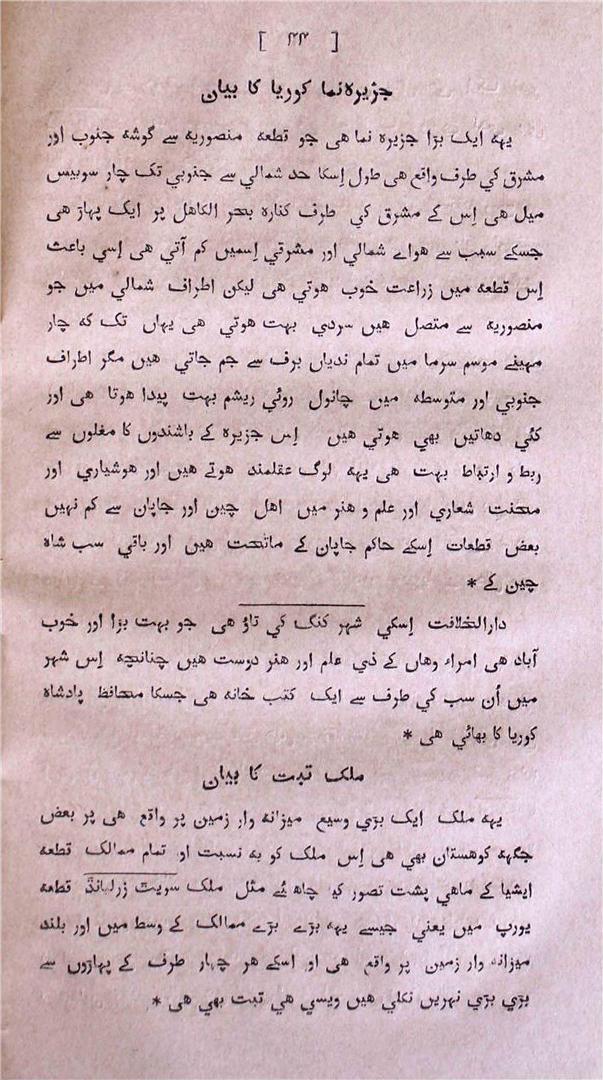 جزیرہ نما کوریا کا بیان
یہہ ایک بڑا جزیرہ نما هی جو قطعہ منصوریہ سے گوشہ جنوب اور
مشرق کي طرف واقع هی طول اِسکا حد شمالي سے جنوبي تک چار سو بیس
میل هی اِس کے مشرق کي طرف کنارہ بحر الکاهل پر ایک پہاڑ هی
جسکے سبب سے هواے شمالي اور مشرقي اِسمیں کم آتي هی اِسي باعث
اِس قطعہ میں زراعت خوب هوتي هی لیکن اطراف شمالي میں جو
منصوریہ سے متصل هیں سردي بہت هوتي هی یہاں تک کہ چار
مہینے موسم سرما میں تمام ندیاں برف سے جم جاتي هیں مگر اطراف
جنوبي اور متوسطہ میں چانول روئي ریشم بہت پیدا هوتا هی اور
کئي دهاتیں بھي هوتي هیں اِس جزیرہ کے باشندوں کا مغلوں سے
ربط و ارتباط بہت هی یہہ لوگ عقلمند هوتے هیں اور هوشیاري اور
محنت شعاري اور علم و هنر میں اهل چین اور جاپان سے کم نہیں
بعض قطعات اِسکے حاکم جاپان کے ماتحت هیں اور باقي سب شاہ
چین کے *
دارالخلافت اِسکي شہر کنگ کي تاؤ هی جو بہت بڑا اور خوب
آباد هی امراء وهاں کے ذي علم اور هنر دوست هیں چنانچہ اِس شہر
میں اُن سب کي طرف سے ایک کتب خانہ هی جسکا محافظ پادشاہ
کوریا کا بھائي هی *
ملک تبت کا بیان
یہہ ملک ایک بڑي وسیع میزانہ وار زمین پر واقع هی پر بعض
جگہہ کوهستان بھي هی اِس ملک کو بہ نسبت اور تمام ممالک قطعہ
ایشیا کے ماهي پشت تصور کیا چاهئے مثل ملک سویٹ زرلیانڈ قطعہ
یورپ میں یعني جیسے یہہ بڑے بڑے ممالک کے وسط میں اور بلند
میزانہ وار زمین پر واقع هی اور اسکے هر چہار طرف کے پہاڑوں سے
بڑي بڑي نہریں نکلي هیں ویسي هي تبت بھي هی *